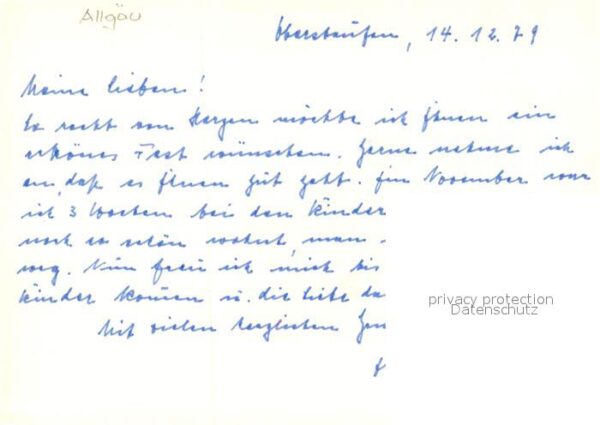 Allgäu
Oberstaufen, 14.12.79
Meine Lieben!
So recht von Herzen möchte ich Ihnen ein
schönes Fest wünschen. Gerne nehme ich
an, daß es Ihnen gut geht. Im November war
ich 3 Wochen bei den Kinder
noch so schön wohnt, man
weg. Nun freu ich mich bis
Kinder kommen u. die liebe da
privacy protection
Datenschutz
Mit vielen herzlichen